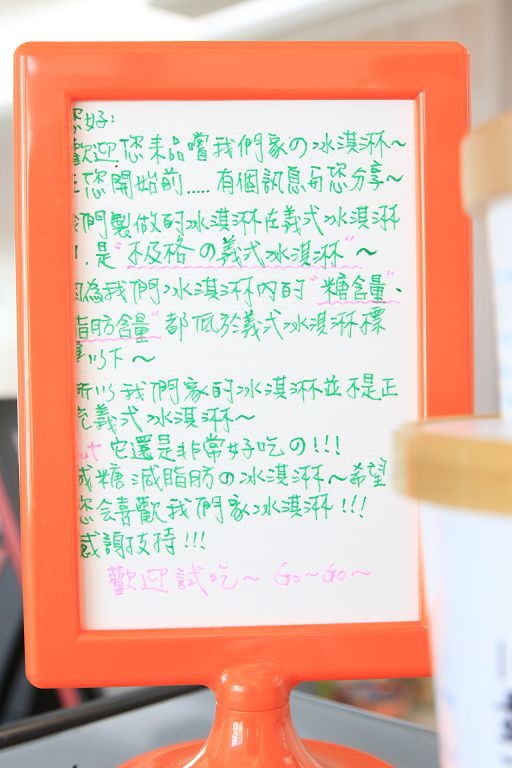 您好:
歡迎您來品嚐我們家の冰淇淋~
在您開始前..... 有個訊息与您分享~
我們製做的冰淇淋在義式冰淇淋
,是"不及格の義式冰淇淋"~
因為我們冰淇淋內的"糖含量"、
脂肪含量"都低於義式冰淇淋標
準以下~
所以我們家的冰淇淋並不是正
統義式冰淇淋~
but 它還是非常好吃の!!!
減糖減脂肪の冰淇淋~希望
您会喜歡我們家冰淇淋!!!
感謝技持!!!
歡迎試吃~ Go~Go~